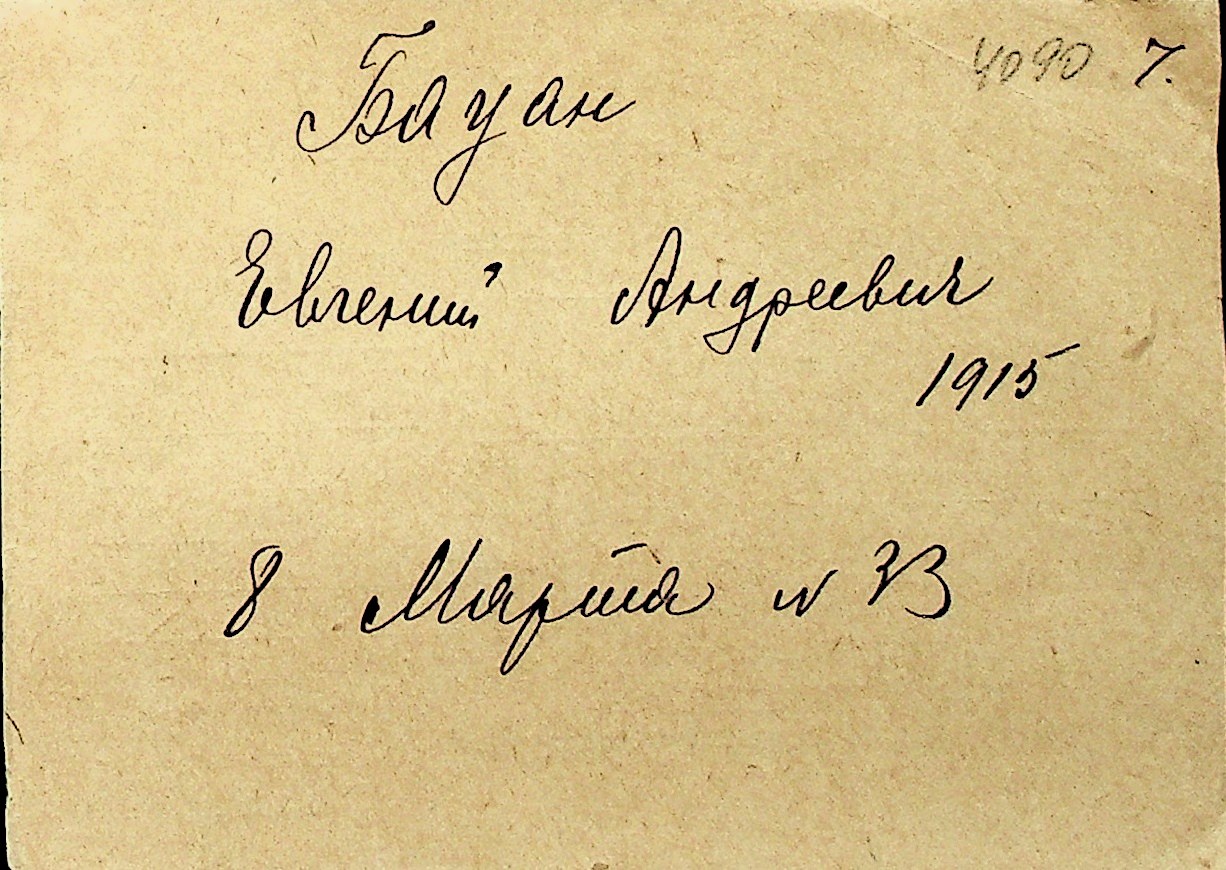 4090 7.
Бауан
Евгений Андреевич
1915
8 Марта N 33